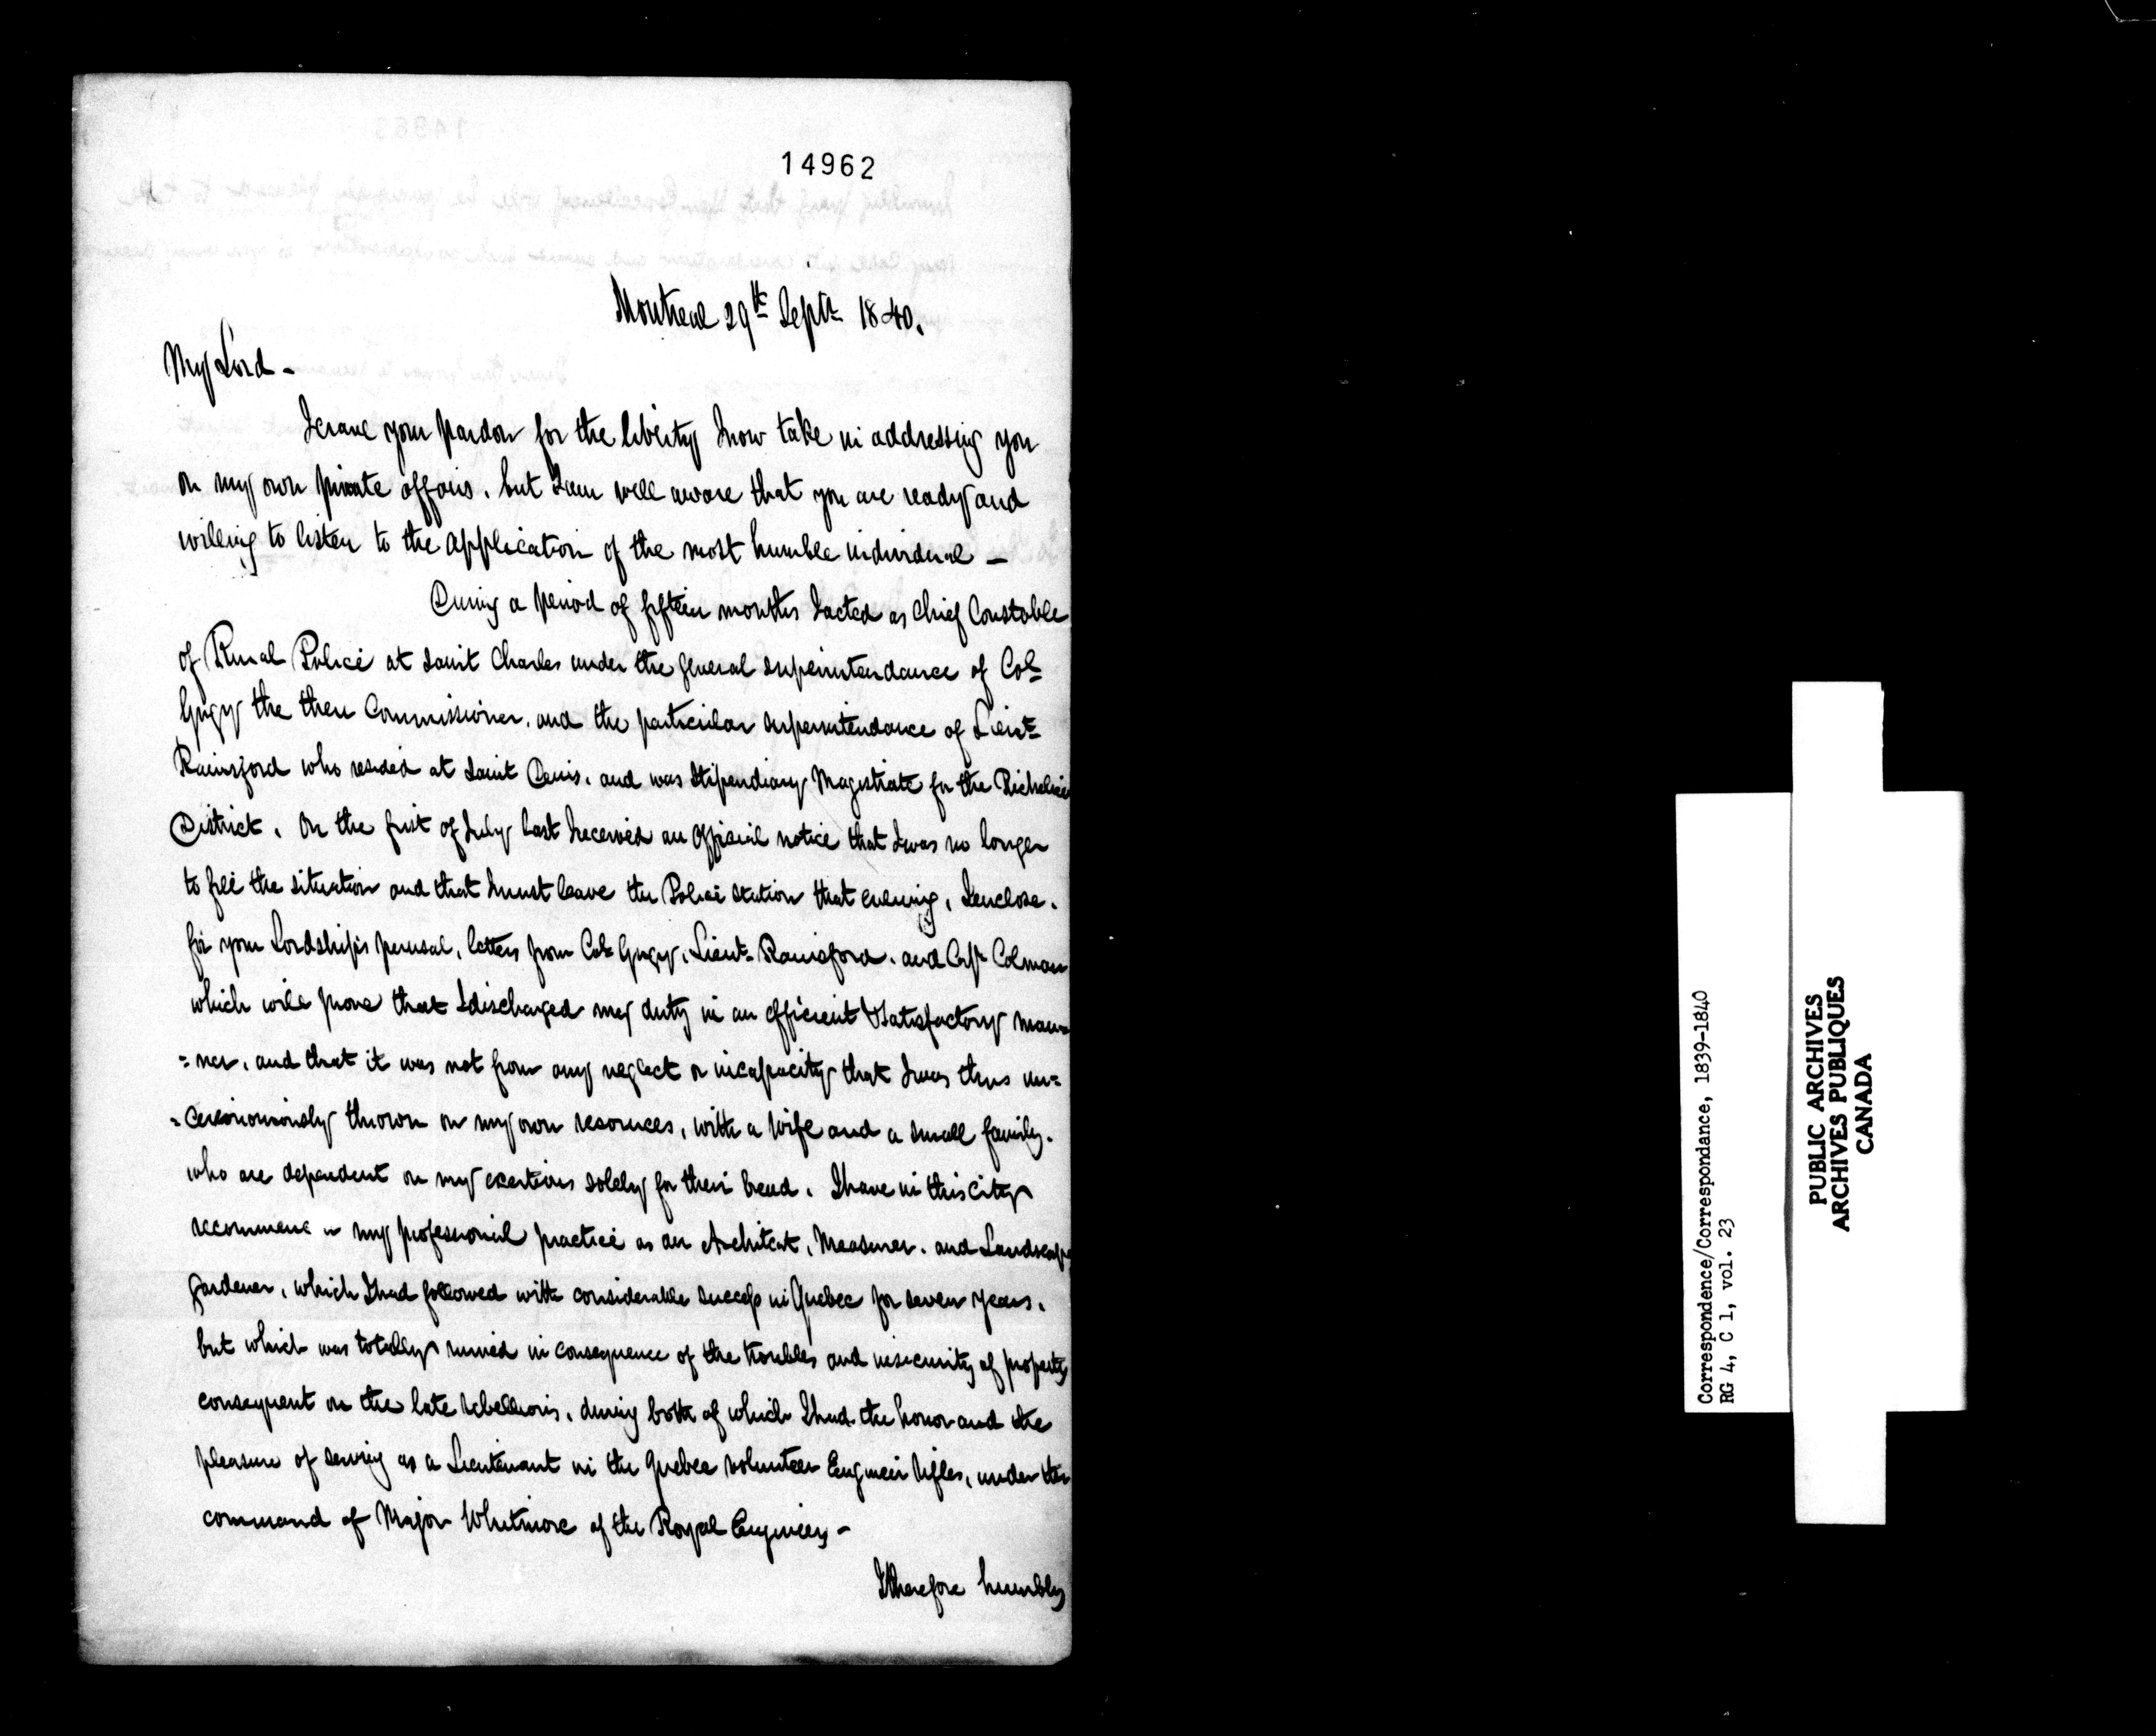 14962
Montreal 29th Septr 1840.
My Lord -
I crave your pardon for the liberty I now take in addressing you
on my own private affairs, but I am well aware that you are ready and
willing to listen to the application of the most humble individual -
During a period of fifteen months I acted as Chief Constable
of Rural Police at Saint Charles under the general superintendance of Col
Gugy the then Commissioner, and the particular superintendance of Lieut
Rainsford who resided at Saint Denis, and was Stipendiary Magistrate for the Richelieu
District. On the first of July last I received an official notice that I was no longer
to fill the situation and that I must leave the Police Station that evening, I enclose,
for your Lordship's perusal, letters from Col Gugy, Lieut Rainsford, and Capt Colman
which will prove that I discharged my duty in an efficient & satisfactory man=
=ner, and that it was not from any neglect or incapacity that I was thus un=
=ceremoniously thrown on my own resources, with a wife and a small family,
who are dependent on my exertions solely for their bread. I have in this city
recommenc my professional practice as an Architect, Measurer, and Landscape
Gardener, which I had followed with considerable success in Quebec for seven years,
but which was totally ruined in consequence of the troubles and insecurity of property
consequent on the late rebellions, during both of which I had the honor and the
pleasure of serving as a Lieutenant in the Quebec Volunteer Engineer Rifles, under the
command of Major Whitmore of the Royal Engineers -
I therefore humbly
Correspondence/Correspondance, 1839-1840
RG 4, C 1, vol. 23
PUBLIC ARCHIVES
ARCHIVES PUBLIQUES
CANADA